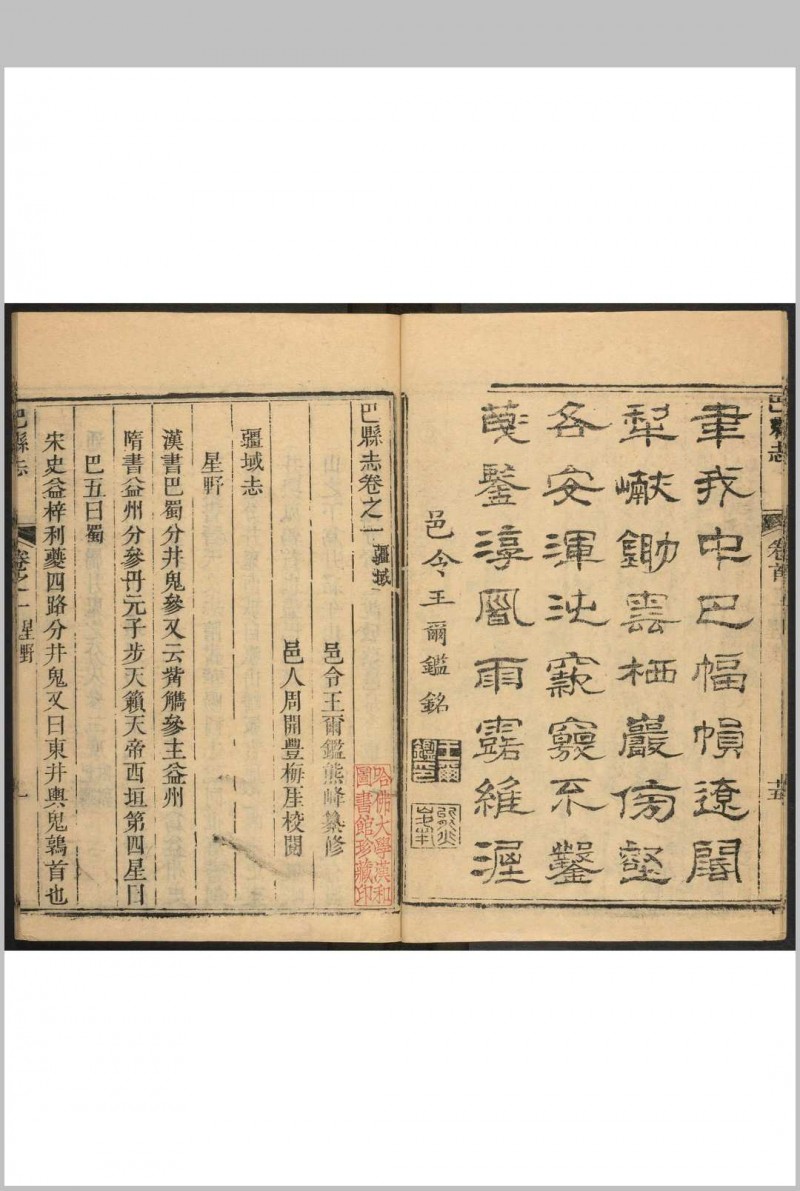 巴縣志
卷首
十五
聿我中巴幅幀遼闊
犁巘鋤雲栖巖傍壑
各安渾沌窾竅不鑿
鑒淳風雨露維渥
邑令王爾鑑銘
王爾鑑印
巴縣志卷之一 疆域
哈佛大學漢和圖書館珍藏印
邑令王爾鑑熊峰纂修
邑人周開豐梅厓校閱
疆域志
星野
漢書巴蜀分井鬼參又云觜觿參主益州
隋書益州分參丹元子步天籟天帝西垣第四星曰
巴五曰蜀
宋史益梓利夔四路分井鬼又曰東井輿鬼鶉首也
巴縣志
卷之一 星野
一